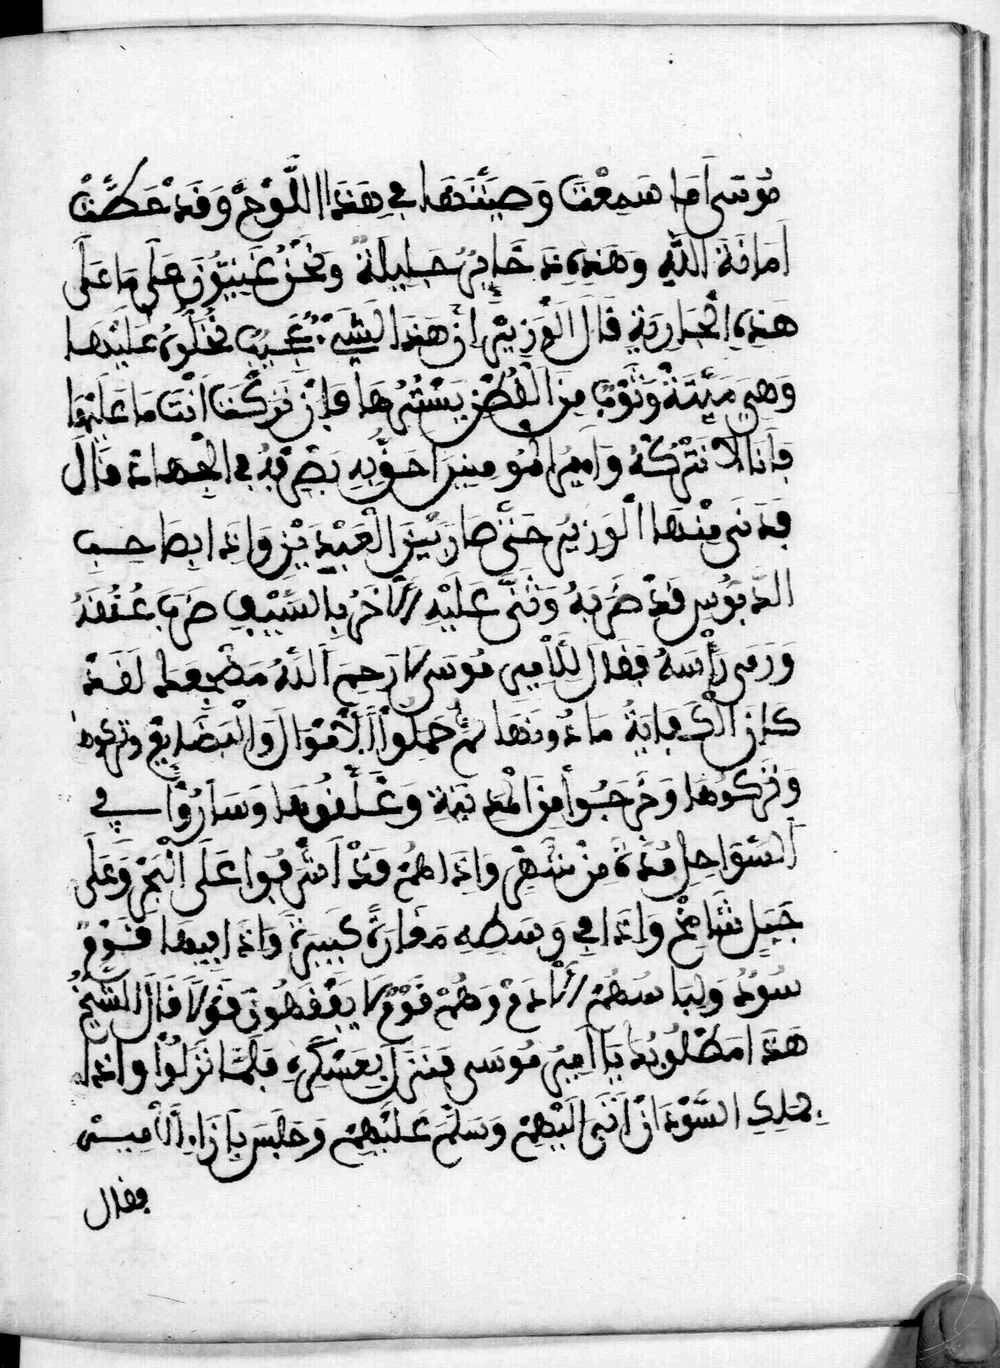 مُوسَى اَمَا سَمِعْتَ وَصِيَّتَهَا فِي هَذَا اللَّوْحْ وَقَدْ حَطَّتْ
اَمَانَةَ اللَّهِ وَهَذِهِ ذَخَايِرُ جَلِيلَةٌ وَنَحْنُ غَنِيُّونَ عَلَى مَا عَلَى
هَذِهِ الْجَارِيَةِ قَالَ الْوَزِيرُ اِنَّ هَذَا لَشَيْءٌ عَجِيبٌ نُخَلُّوهُ عَلَيْهَا
وَهِيَ مَيِّتَةٌ وَثَوْبٌ مِنَ الْقُطْنِ يَسْتُرُهَا فَإِنْ تَرَكْتَ اَنْتَ مَا عَلَيْهَا
فَاَنَا لَا نَتْرُكُهُ وَاَمِيرُ الْمُومِنِينَ اَحَقُّ بِهِ يَصْرِفُهُ فِي الْجِهَادِ قَالَ
فَدَنَى مِنْهَا الْوَزِيرُ حَتَّى صَارَ بَيْنَ الْعَبْدَيْنِ وَاِذَا بِصَاحِبِ
الدَّبُوسِ قَدْ ضَرَبَهُ وَثَنَّى عَلَيْهِ الْاَخَرُ بِالسَّيْفِ ضَرَبَ عُنُقَهُ
وَرَمَى رَأْسَهُ فَقَالَ الْاَمِيرُ مُوسَى لَا رَحِمَ اللَّهُ مَضْجِعَكَ لَقَدْ
كَانَ الْكِفَايَةُ مَا دُونَهَا ثُمَّ حَمَلُوا الْاَمْوَالَ وَالْبَضَايِعَ وتركوها
وَتَرَكُوهَا وَخَرَجُوا مِنَ الْمَدِينَةِ وَغَلَّقُوهَا وَسَارُوا فِي
السَّوَاحِلِ مُدَّةً مِنْ شَهْرٍ وَاِذَا هُمْ قَدْ اَشْرَفُوا عَلَى الْبَحْرِ وَعَلَى
جَبَلٍ شَامِخٍ وَاِذَا فِي وَسَطِهِ مَغَارَةٌ كَبِيرَةٌ وَاِذَا فِيهَا قَوْمٌ
سُودٌ وَلِبَاسُهُمْ الْاَدَمُ وَهُمْ قَوْمٌ لَا يَفْقَهُونَ قَوْلًا قَالَ الشَّيْخُ
هَذَا مَطْلُوبُكَ يَا اَمِيرُ مُوسَى فَنَزَلَ بِعَسْكَرِهِ فَلَمَّا نَزَلُوا وَاِذَا
بِمَلِكِ السَّوْدَانْ اَتَى اِلَيْهِمْ وَسَلَّمَ عَلَيْهِمْ وَجَلَسَ بِاِزَاءِ الْاَمِيرِ
فقال